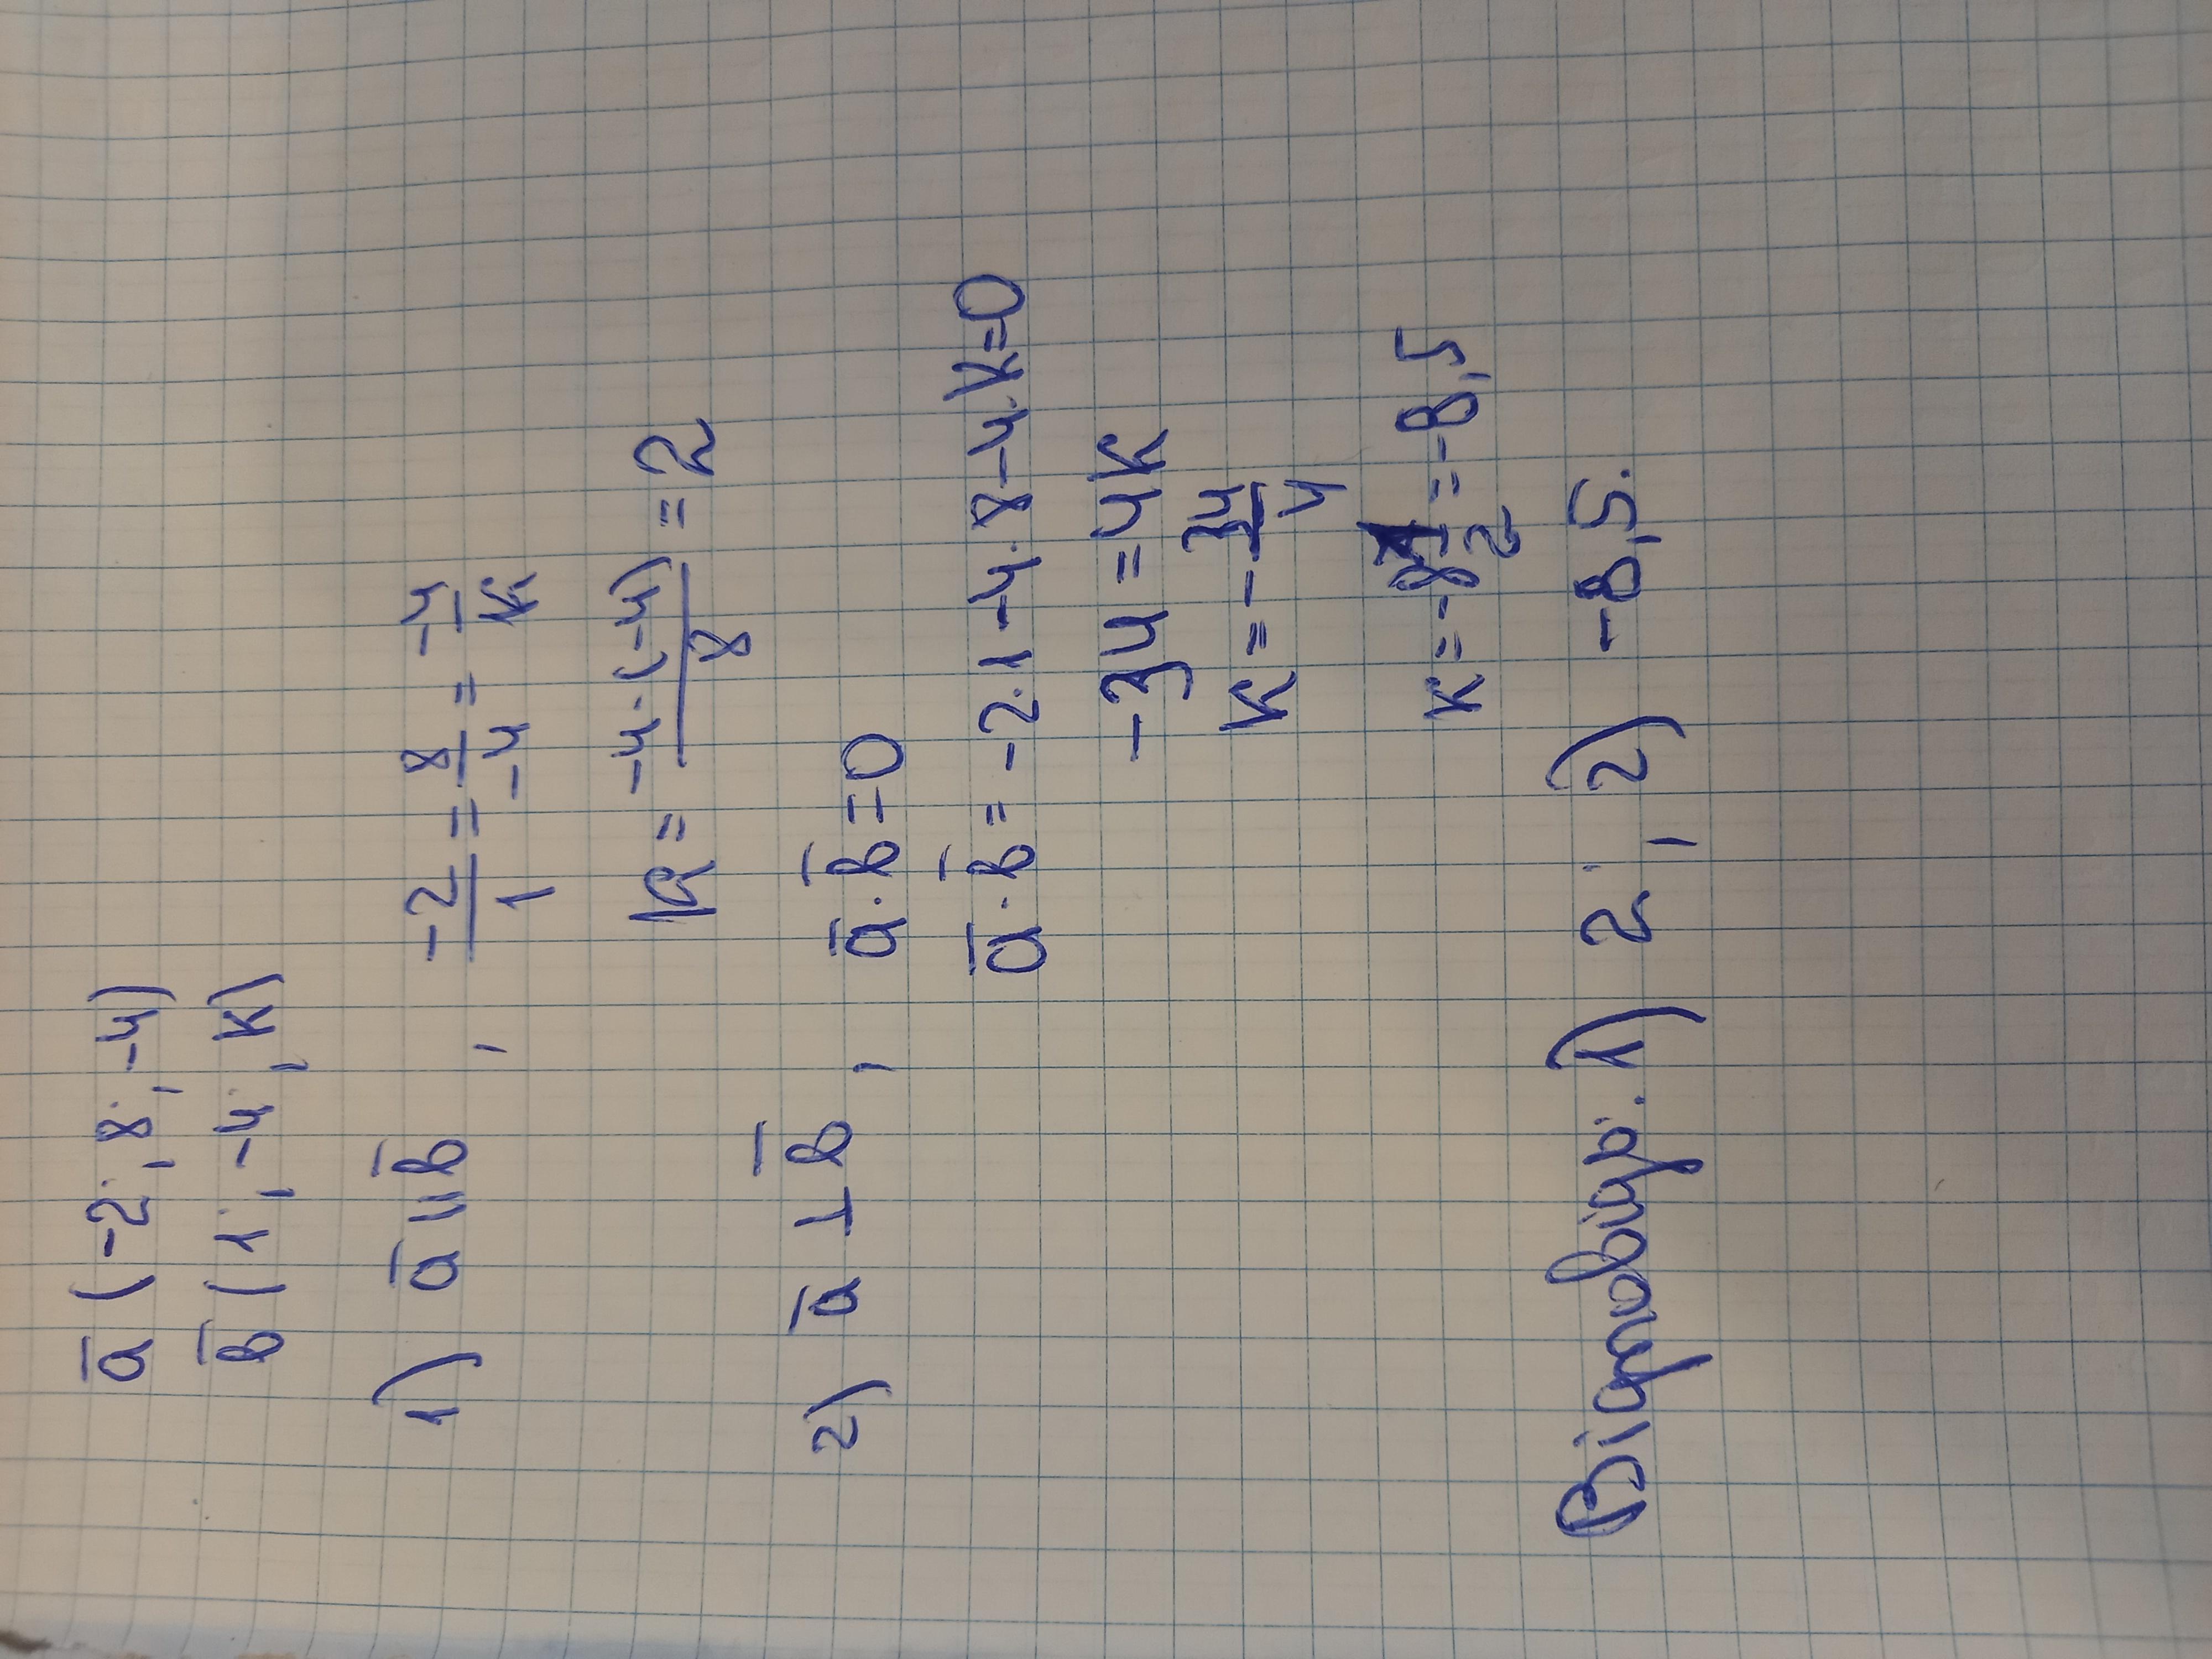 a̅ (-2; 8; -4)
b̅ (1; -4; k)
1) a̅ || b̅ , -2/1 = 8/-4 = -4/k
k = -4·(-4)/8 = 2
2) a̅ ⊥ b̅ , a̅·b̅=0
a̅·b̅ = -2·1-4·8-4·k=0
-34=4k
k=-34/4
k=-/2=-8,5
Відповідь: 1) 2; 2) -8,5.